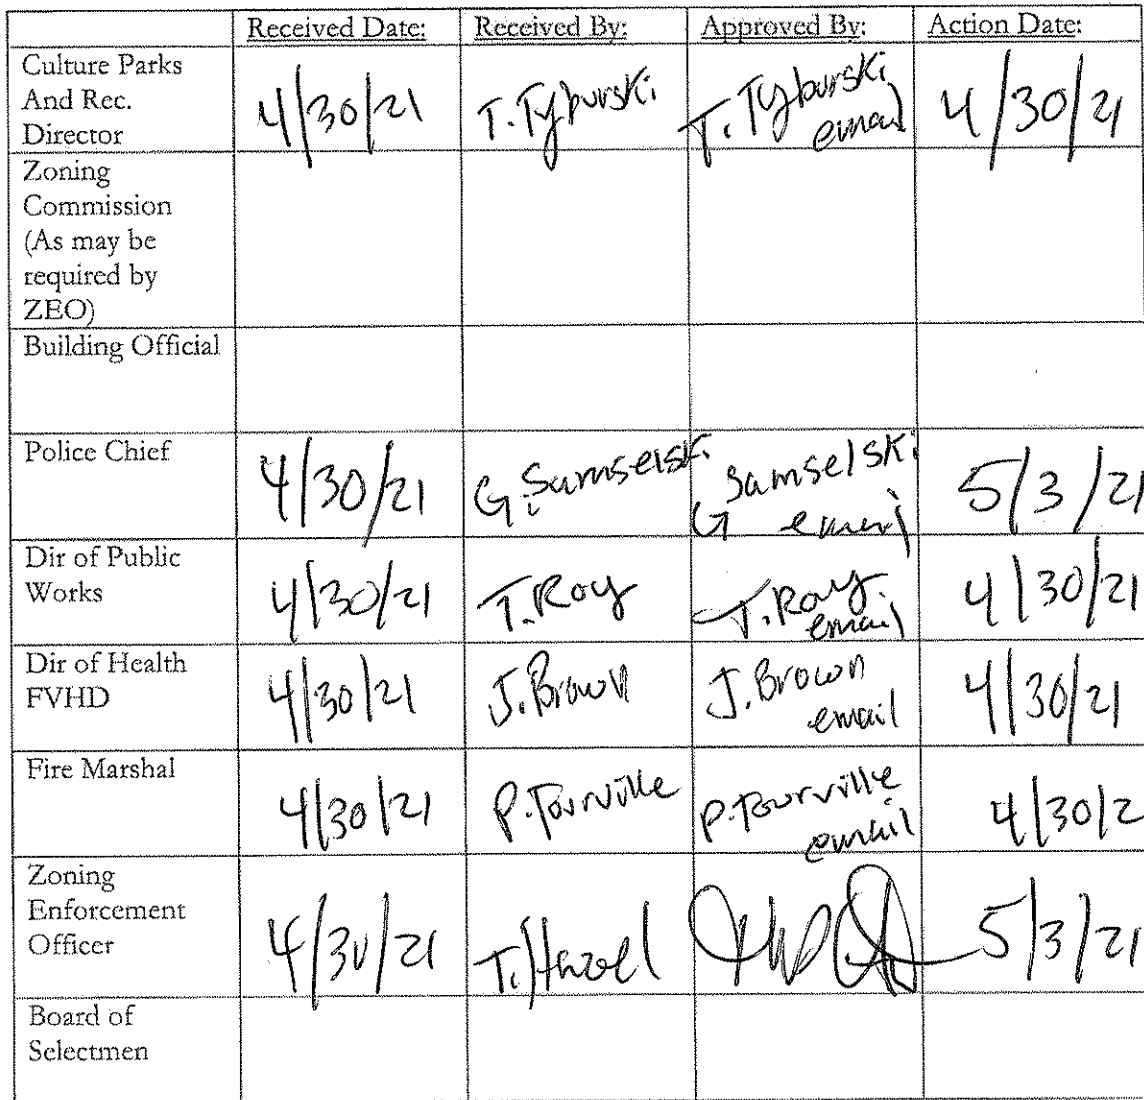 Received Date: Received By: Approved By: Action Date:
Culture Parks
And Rec.
Director
4/30/21 T. Tyburski T. Tyburski
email
4/30/21
Zoning
Commission
(As may be
required by
ZEO)
Building Official
Police Chief
4/30/21 G. Samselski G Samselski
email
5/3/21
Dir of Public
Works
4/30/21 T. Roy T. Roy.
email
4/30/21
Dir of Health
FVHD
4/30/21 J. Brown J. Brown
email
4/30/21
Fire Marshal
4/30/21 P. Tourville P. Tourville
email
4/30/2
Zoning
Enforcement
Officer
4/30/21 T. 5/3/21
Board of
Selectmen